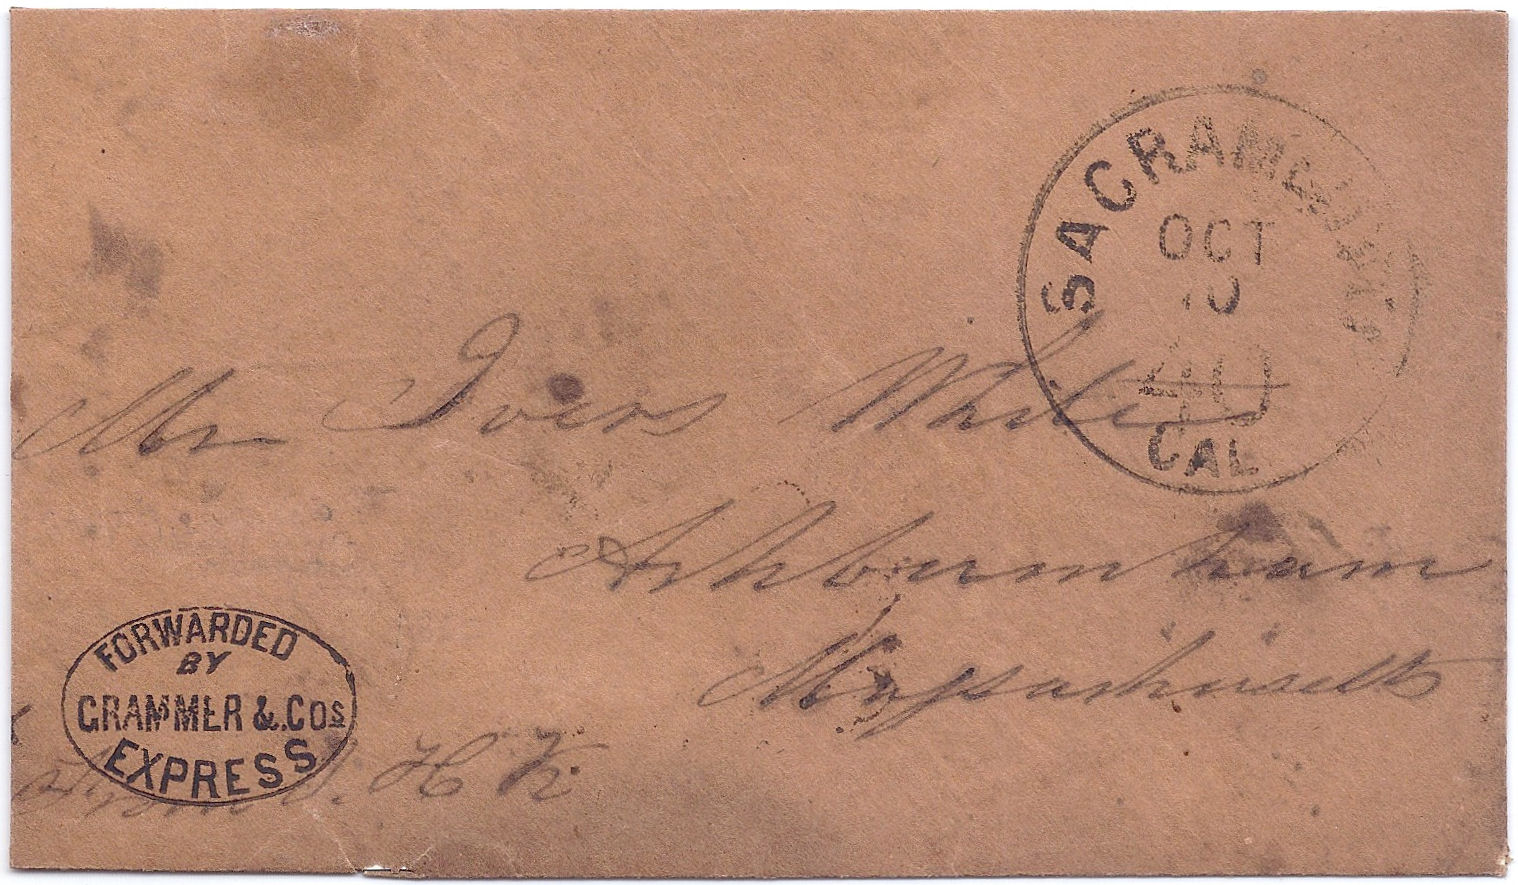 SACRAMENTO
OCT
10
CAL
Mr Ivers White
Ashburnham
Massachusetts
FORWARDED
BY
GRAMMER & COS
EXPRESS
From S. H K.